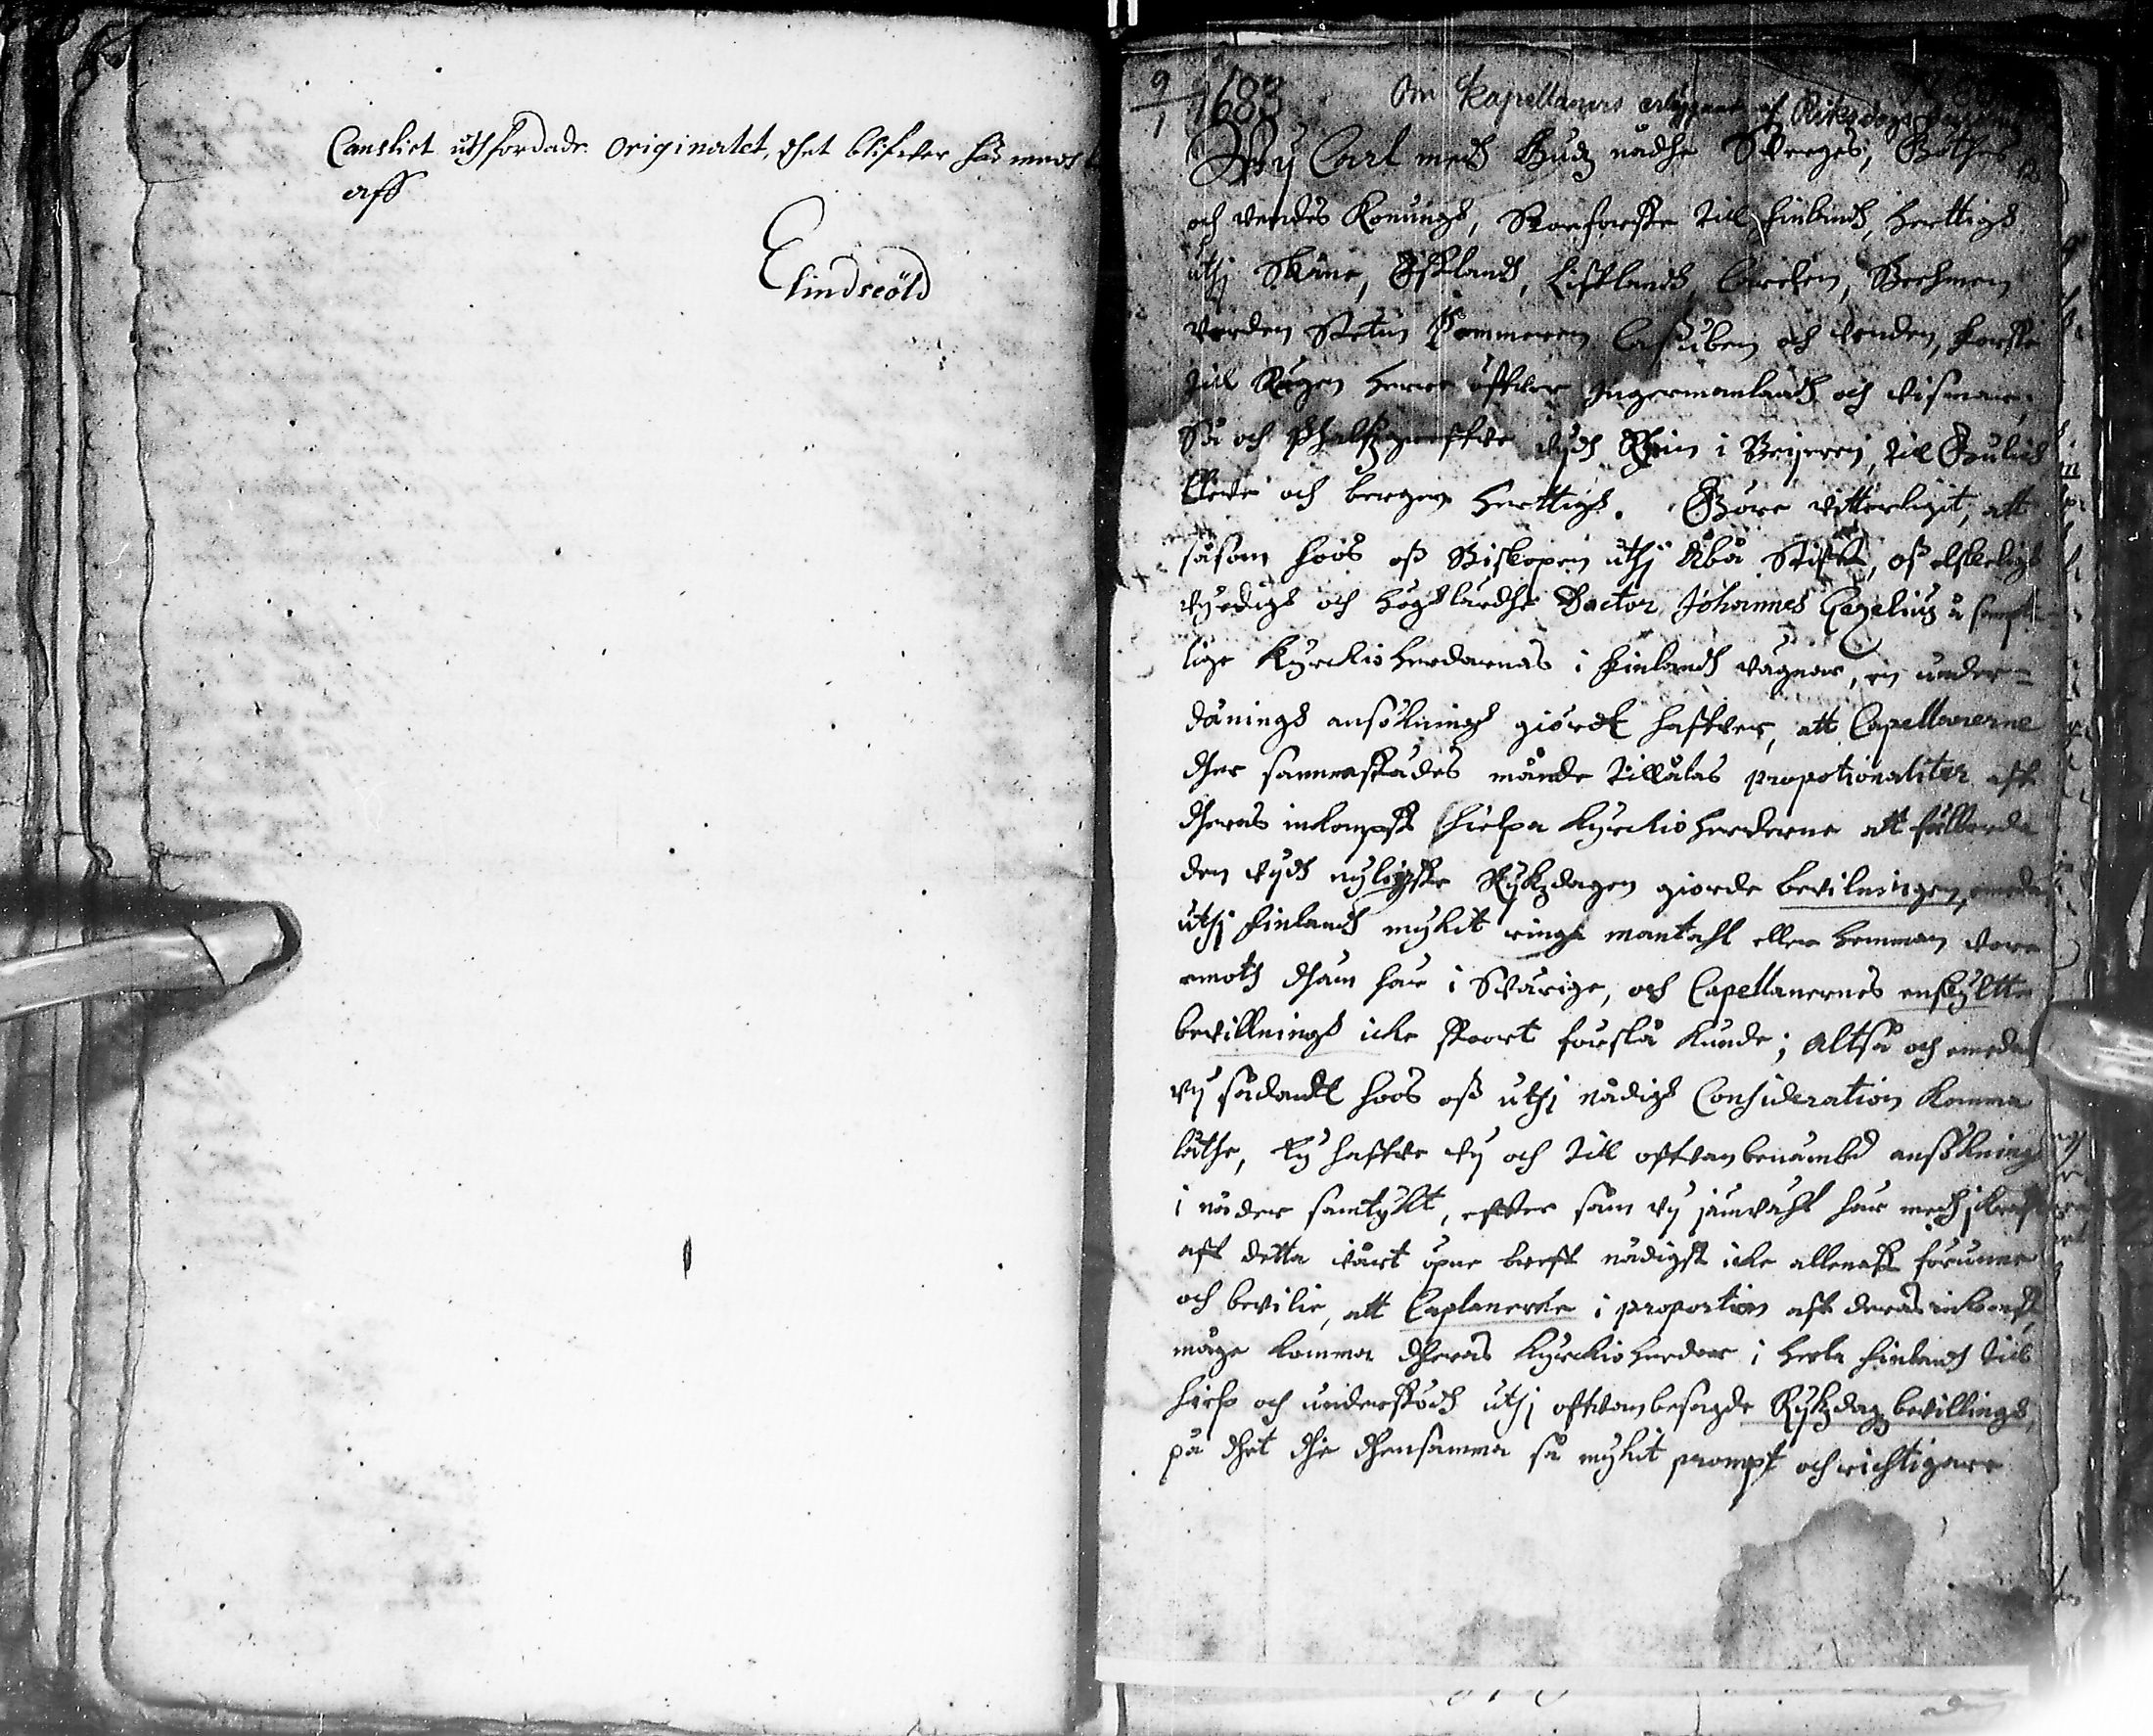 Cansliet uthfordade originalet, thet blifwer här medh
aff
E Lindsciöld
9/1 1683 Om Kapellaners erläggande af Riksdags
Wy Carl medh Gudz nådhe Swerges, Göthes
och Wendes Konungh, Storförste till Finlandh, Hertigh
uthj Skåne, Estlandh, Lifflandh, Carelen, Brehmen
Verden Stetin Pommeren Casuben och Wenden, Förste
till Rügen Herre öfwer Ingermanlandh och Wismar;
Så och Phaltzgrefwe widh Rhein i Beijeren, till Gülich
Cleve och bergen Hertigh. Giöre witterligit, att
såsom hoos oss Biskopen uthj Åbo Stifft, oss elskeligh
wyrdigh och höglärdhe Doctor Johannes Gezelius å sampt-
lige Kyrckioherdarnas i Finlandh wägnar, en under=
dånigh ansökningh giordt hafwer, att Capellanerne
dher sammastädes måtte tillåtas propotionaliter aff
dheras inkompst hielpa Kyrckioherderne att fulborda
den widh nyligste Rykzdagen giorde bevilningen, emedan
uthj Finlandh mykit ringa mantahl eller hemman vore
emoth dhäm här i Swärige, och Capellanernes enskylte
bevillningh icke stoort förslå kunde; Altså och emedan
wy sådandt hoos oss uthj nådigh Consideration komma
låthe, Ty hafwe wy och till ofwanbenämbd ansökningh
i nåder samtykt, efter såm wy jämwähl här medh i krafft
aff detta wårt öpne breff nådigst icke allenast förunne
och bevilie, att Caplanerne i proportion aff deras inkomst,
måge komma dheras Kyrckioherdar i hela Finlandh till
hielp och understödh uthj ofwanbesagde Rykzdagz bevillingh,
på dhet dhe dhensamma så mykit prompt och richtigare